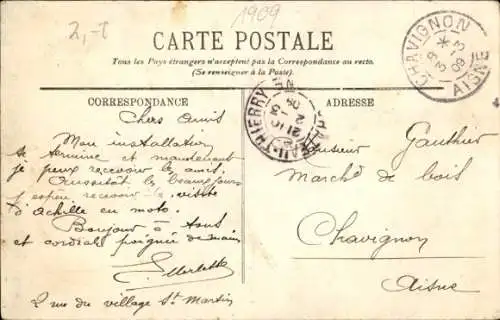 2,-
1909
CARTE POSTALE
Tous les Pays étrangers n'acceptent pas la Correspondance au recto.
(Se renseigner à la Poste).
CORRESPONDANCE
Chers amis
Mon installation
se termine et maintenant
je peux recevoir les amis.
Aussitôt les beaux jours
j'espère recevoir la visite
d'Achille en moto.
Bonjour à tous
et cordiale poignée de main
2 rue du village St Martin
ADRESSE
Monsieur Gauthier
Marchd de bois
Chavignon
Aisne
CHAVIGNON
AISNE
THIERRY